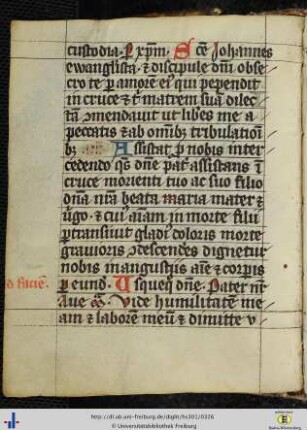 custodia. P xp̄m. Scē Johannes
ewanglista ⁊ discipule dn̄i obse
cro te p amorē ei qui pependit
in cruce ⁊ t̄ matrem suā dilec
tā ꝯmendauit ut libes me a
peccatis ⁊ ab om̄ib; tribulation̄
b; Assistat p nobis inter
cedendo q̄s dn̄e pat̄ assistans ī
cruce morienti tuo ac suo filio
dn̄a nr̄a beata maria mater ⁊
ū̄go. ⁊ cui aīam in morte filii
ptransiuit gladī doloris morte
grauioris ꝯdescendēs dignetur
nobis in angustiis aīe ⁊ corpis
p eund. Usqueq dn̄e. Pater nr̄
d faciē.
Aue . Vide humilitatem me
am ⁊ laborem meū ⁊ dimitte v
http://dl.ub.uni-freiburg.de/diglit/hs301/0326
© Universitätsbibliothek Freiburg
Baden-Württemberg